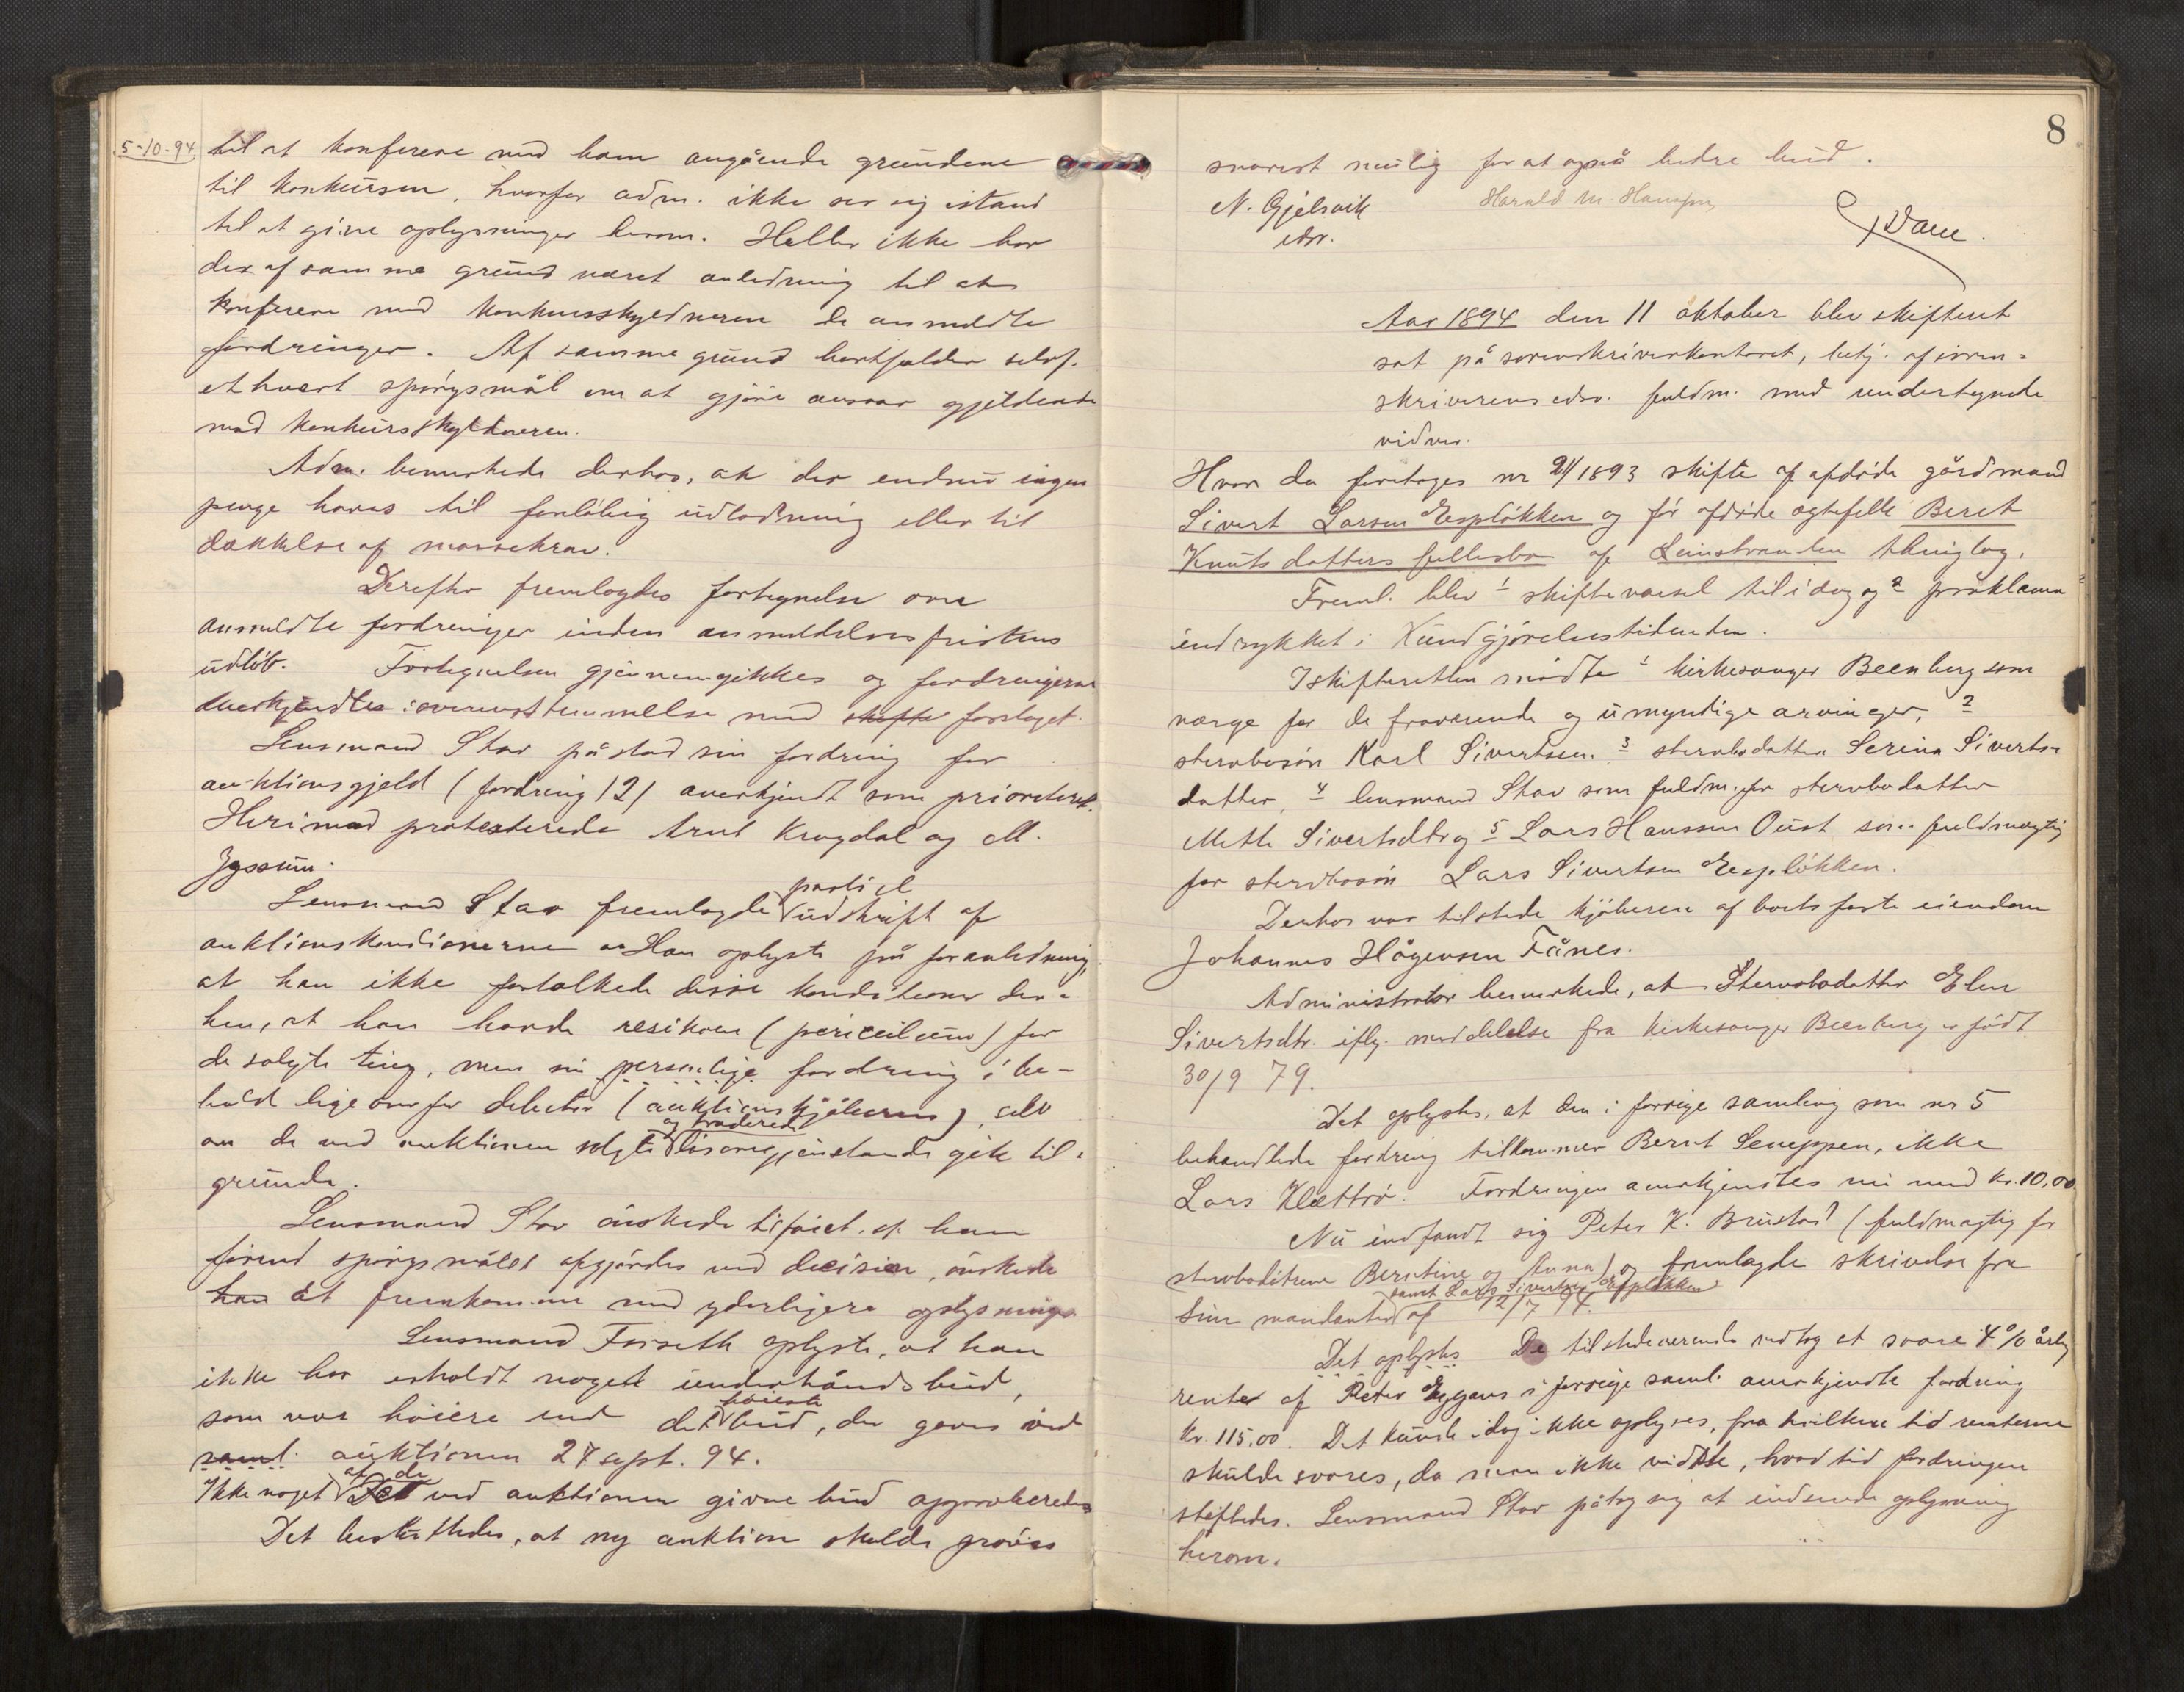 5-10-94. til at konferere med ham angående grundene
til konkursen, hvorfor adm. ikke ser sig istand
til at give oplysninger herom. Heller ikke har
der af samme grund været anledning til at
konferere med konkursskyldneren de anmeldte
fordringer. Af samme grund bortfalder selvf.
ethvert spörgsmål om at gjöre ansvar gjeldende
mod konkursskyldneren.
Adm. bemerkede derhos, at der endnu ingen
penge haves til forelöbig udlodning eller til
dækkelse af massekrav.
Derefter fremlagdes fortegnelse over
anmeldte fordringer inden anmeldelsesfristens
udlöb. Fortegnelsen gjennemgikkes og fordringerne
anerkjendtes i overensstemmelse med skifte forslaget.
Lensmand Stav påstod sin fordring for
auktionsgjeld (fordring 12) anerkjendt som prioriteret.
Herimod protesterede Arnt Krogdal og M.
Jyssum.
partiel
Lensmand Stav fremlagde udskrift af
auktionskonditionerne. Han oplyste på foranledning,
at han ikke fortolkede disse konditioner der-
hen, at han havde resikoen (periculum) for
de solgte ting, men sin personlige fordring i be-
hold ligeoverfor debitor (auktionskjöberen), selv
og traderede
om de ved auktionen solgte lösöregjenstande gik til-
grunde.
Lensmand Stav önskede tilföiet, at han
förend spörgsmålet afgjördes ved decision, önskede
han at fremkomme med yderligere oplysninger
Lensmand Forseth oplyste, at han
ikke har erholdt noget underhåndsbud,
höieste
som var höiere end det bud, der gaves ved
saml. auktionen 24 sept. 94.
af de
Ikke noget Det ved auktionen givne bud approberedes
Det besluttedes, at ny auktion skulde pröves
8
snarest mulig for at opnå bedre bud.
N. Gjelsvik Harald M. Hansen
edsv.
Aar 1894 den 11 oktober blev skifteret
sat på sorenskriverkontoret, betj. af soren-
skriverens edsv. fuldm. med undertegnede
vidner.
Hvor da foretoges nr 21/1893 skifte af afdöde gårdmand
Sivert Larsen Espløkken og för afdöde ægtefelle Beret
Knutsdatters fellesbo af Leinstranden thinglag.
Freml. blev 1 skiftevarsel til idag og 2 proklama
indrykket i Kundgjörelsestidenden.
I skifteretten mödte 1 kirkesanger Beenberg som
verge for de fraværende og umyndige arvinger, 2
stervbosön Karl Sivertsen. 3 stervbodatter Serina Siverts-
datter, 4 lensmand Stav som fuldm. for stervbodatter
Mette Sivertsdtr og 5 Lars Hanssen Oust som fuldmægtig
for stervbosön Lars Sivertsen Espløkken.
Derhos var tilstede kjöberen af boets faste eiendom
Johannes Hågensen Fånes.
Administrator bemerkede, at Stervbodatter Elen
Sivertsdtr. iflg. meddelelse fra kirkesanger Beenberg er födt
30/9 79.
Det oplystes, at den i forrige samling som nr 5
behandlede fordring tilkommer Bernt Leneppen, ikke
Lars Klættrö. Fordringen anerkjentes nu med kr. 10,00
Nu indfandt sig Peter K. Brustad (fuldmægtig for
stervbodötrene Berntine og Anna) og fremlagde skrivelse fra
samt Lars Sivertsen Espløkken
sine mandanter af 12/7 94.
Det oplystes De tilstedeværende vedtog at svare 4 % årlig
renter af Peter Eggans i forrige saml. anerkjendte fordring
kr. 115,00. Det kunde idag ikke oplyses, fra hvilken tid renterne
skulde svares, da man ikke vidste, hvad tid fordringen
stiftedes. Lensmand Stav påtog sig at indsende oplysning
herom.